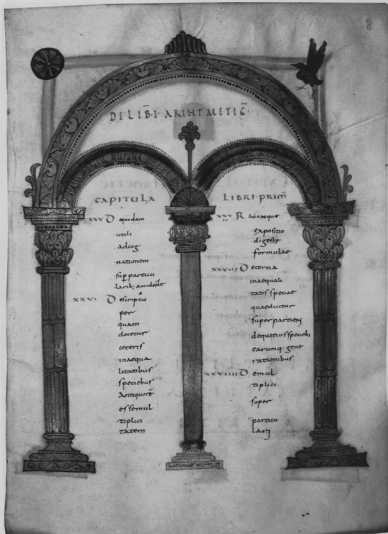 8
DE LIBI ARITHMETIC
CAPITULA
XXV D equodam
utili
ad cog
nitionem
super particu
laribus accidente
XXVI D escriptio
per
quam
docetur
ceteris
inaequa
litatibus
speciebus
Antiquiore
esse mul
tiplici
tatem
LIBRI PRIM
XXV R atioaeque
expositio
digeste
formulae
XXVIII D e tertia
inaequali
tatis specie
quae dicitur
super partiens
deque eius speciebus
earumque gene
rationibus
XXVIIII D e mul
tiplici
super
particu
lari